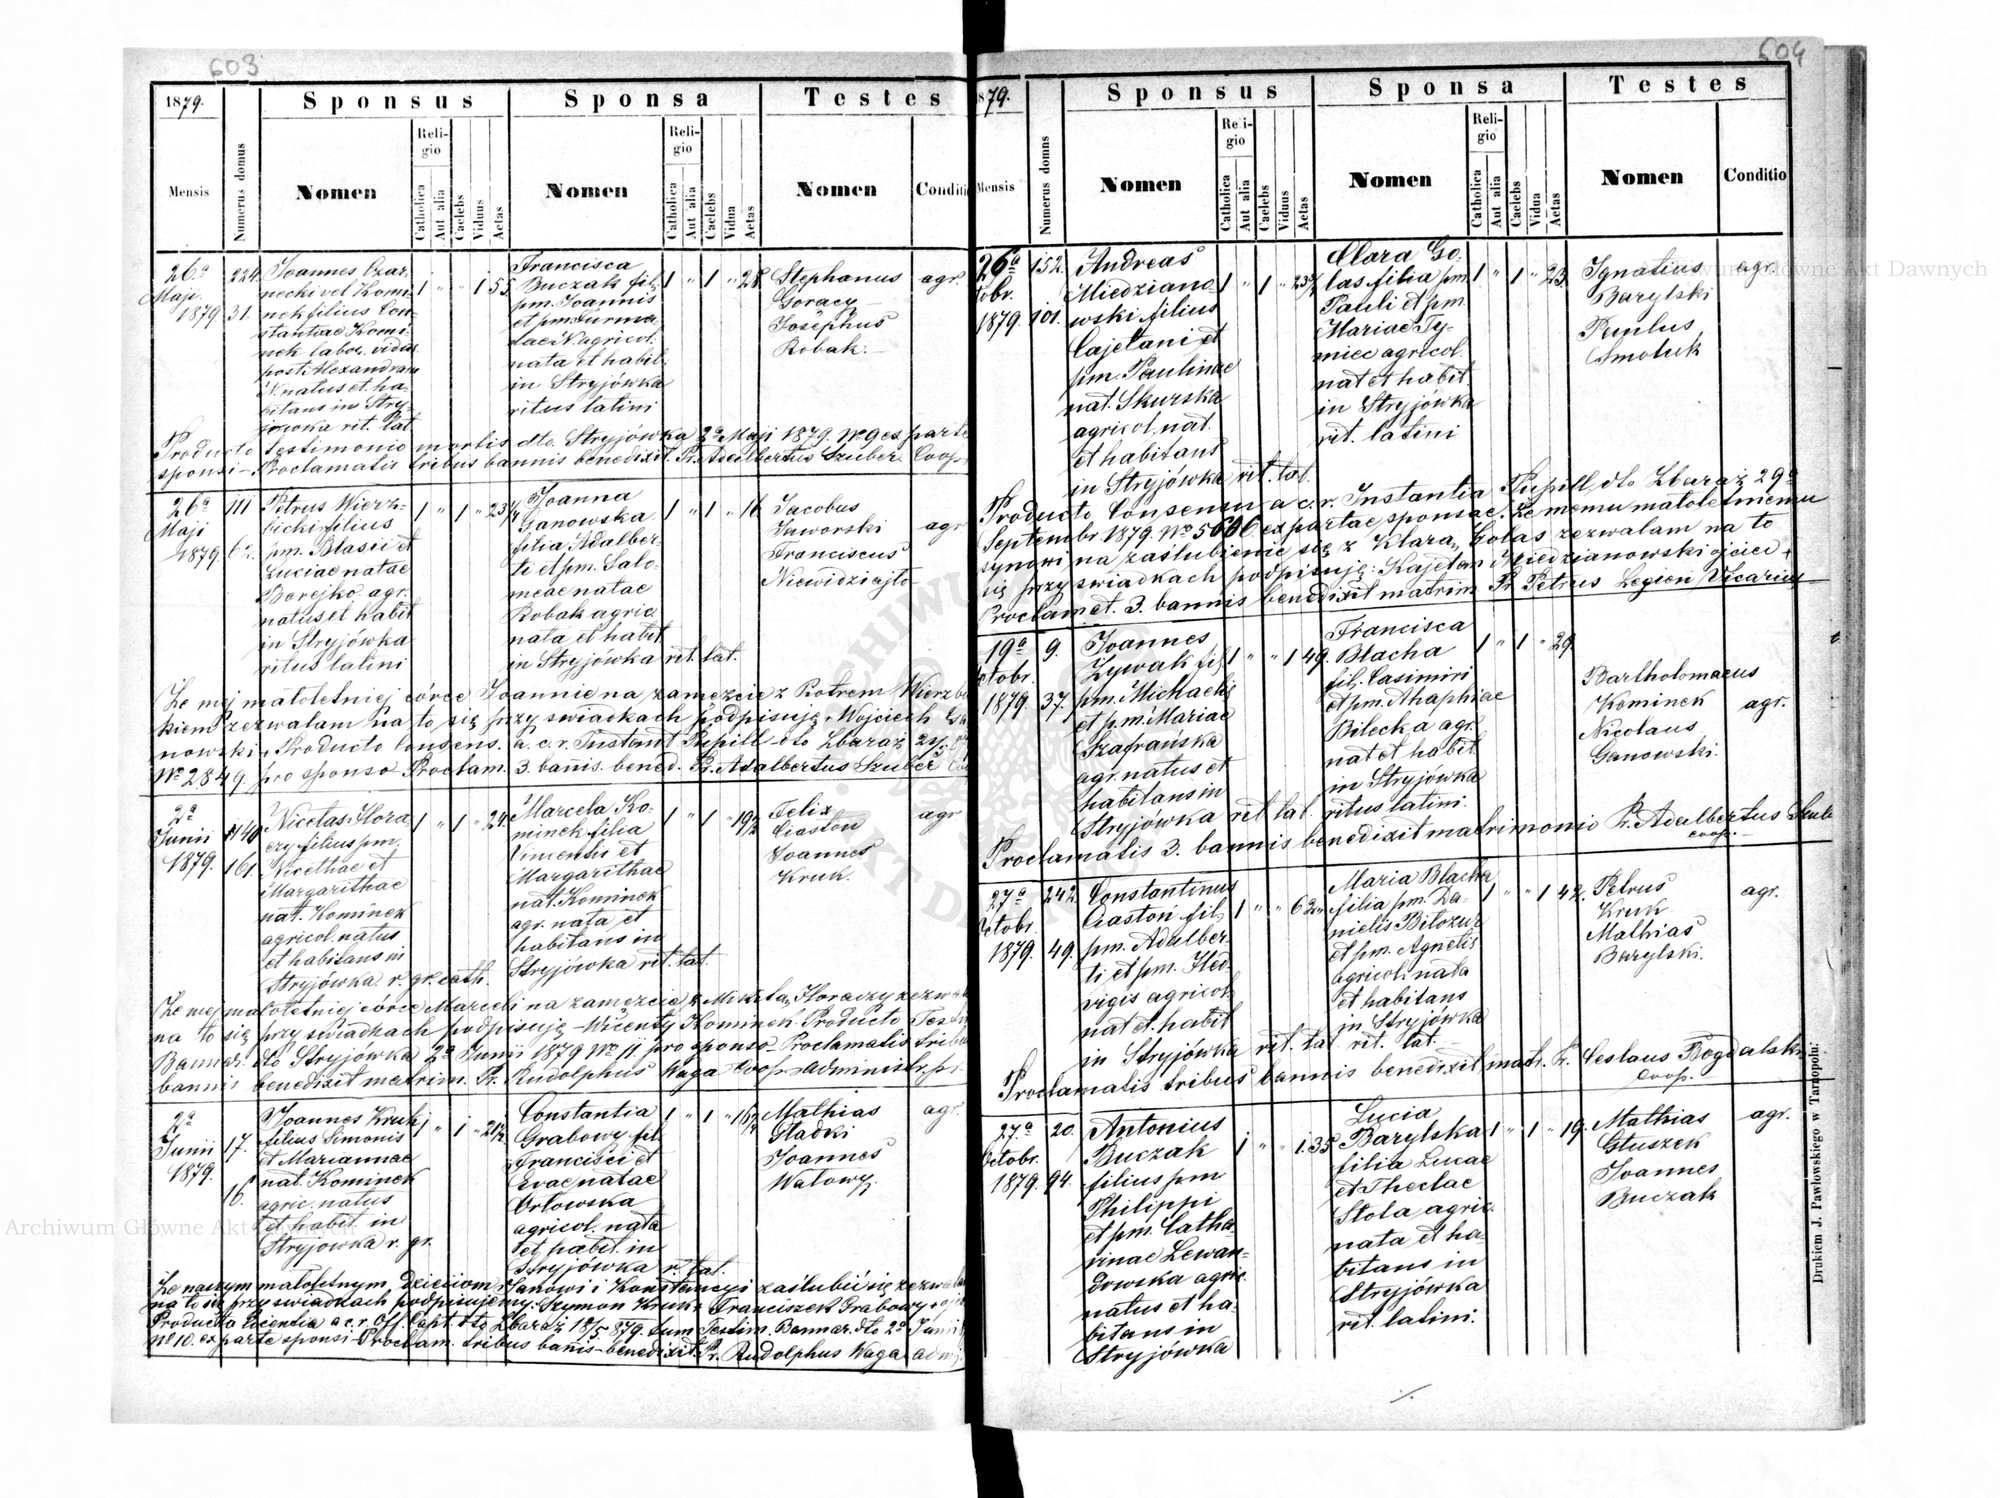 603
1879.
Sponsus
Sponsa
Testes
Mensis
Numerus domus
Nomen
Religio
Catholica
Aut alia
Caelebs
Viduus
Aetas
Nomen
Religio
Catholica
Aut alia
Caelebs
Vidua
Aetas
Nomen
Conditio
26a
Maji
1879
224.
31.
Joannes Czar-
necki vel Komi-
nek filius Con-
stantiae Komi-
nek labor. vidus
post Alexandram
N. natus et ha-
bitans in Stry-
jówka rit. lat.
1 " " 1 55
Francisca
Buczak fil.
pm. Joannis
et pm.
N. agricol.
nata et habit.
in Stryjówka
ritus latini
1 " 1 " 28
Stephanus
Goracy
Josephus
Robak.
agr.
Producto testimonio mortis dto. Stryjówka 2a Maji 1879. No 9 ex parte
sponsi - Proclamatis tribus bannis benedixit. Pr. Adalbertus Szuber Coop.
26a
Maji
1879
111
62.
Petrus Wierz-
bicki filius
pm. Blasii et
Luciae natae
Borejko agr.
natus et habit
in Stryjówka
ritus latini
1 " 1 " 23
Joanna
Ganowska
filia Adalber-
ti et pm. Salo-
meae natae
Robak agric
nata et habit
in Stryjówka rit. lat.
1 " 1 " 16
Jacobus
Jaworski
Franciscus
Niewidziajto
agr
Że mej małoletniej córce Joannie na zamęzcie z Piotrem Wierzbic
kiem zezwalam na to się przy świadkach podpisuję + Wojciech Ga
nowski + Producto Consens. a. c. r. Instant. Pupill dto Zbaraż
No 2849. pro sponso Proclam. 3. bannis. bened. Pr. Adalbertus Szuber
2a
Junii
1879.
140
161.
Nicetas Hora
czy filius pm.
Nicethae et
Margarithae
nat. Kominek
agricol. natus
et habitans in
Stryjówka r. gr. cath.
1 " 1 " 24
Marcela Ko-
minek filia
Vincentii et
Margarithae
nat. Kominek
agr. nata et
habitans in
Stryjówka rit. lat.
1 " 1 " 19½
Felix
Ciastoń
Joannes
Kruk.
agr
Że mej małoletniej córce Marceli na zamęzcie z Mikitą Horaczy zezwa
na to się przy świadkach podpisuję - Wicenty Kominek. Producto Testi
Bannar. dto Stryjówka 2a Junii 1879 No 11. pro sponso - Proclamatis tribus
bannis benedixit matrim. Pr. Rudolphus Waga Coop. administr. pi
2a
Junii
1879.
17.
16.
Joannes Kruk
filius Simonis
et Mariannae
nat. Kominek
agric. natus
et habit. in
Stryjowka r. gr.
1 " 1 " 21½
Constantia
Grabowy fil.
Francisci et
Evae natae
Orłowska
agricol. nata
et habit. in
Stryjówka r. lat.
1 " 1 "
Mathias
Gładki
Joannes
Watowy.
agr.
Że naszym małoletnym dzieciom Janowi i Konstancyi zaślubić się zezwalam
na to się przy świadkach podpisujemy: Szymon Kruk + Franciszek Grabowy +
Producta Licentia a c. r. Off. Capt. dto Zbaraż 879. tum Testim. Bannar. dto 2a Junii
No 10. ex parte sponsi - Proclam. tribus banis - benedixit. Pr. Rudolphus Waga adm.
604
1879.
Sponsus
Sponsa
Testes
Mensis
Numerus domus
Nomen
Religio
Catholica
Aut alia
Caelebs
Viduus
Aetas
Nomen
Religio
Catholica
Aut alia
Caelebs
Vidua
Aetas
Nomen
Conditio
26a
1879.
152.
101.
Andreas
Miedziano-
wski filius
Cajetani et
pm. Paulinae
nat. Skurska
agricol. nat.
et habitans
in Stryjówka rit. lat.
1 " 1 " 23
Clara Go-
las filia pm.
Pauli et pm.
Mariae Ty-
miec agricol.
nat et habit.
in Stryjówka
rit. latini
1 " 1 " 23.
Ignatius
Barylski
Paulus
Smoluk
agr.
Producto Consensu a c. r. Instantia Pupill. dto Zbaraż 29a
Septembr 1879. No 5606 ex partae sponsae. Że memu małoletniemu
synowi na zaślubienie się z Klarą Golas zezwalam na to
się przy świadkach podpisuję: Kajetan Miedzianowski ojciec +
Proclam et. 3. bannis benedixit matrim Pr. Petrus Legień Vicarius
19a
Octobr.
1879.
9.
37.
Joannes
Żywak fil
pm. Michaelis
et pm. Mariae
Szafrańska
agr. natus et
habitans in
Stryjówka rit lat.
1 " " 1 49.
Francisca
Blacha
fil. Casimiri
et pm. Ahaphiae
Bilecka agr.
nat et habit
in Stryjówka
ritus latini.
1 " 1 " 29.
Bartholomaeus
Kominek
Nicolaus
Ganowski.
agr.
Proclamatis 3. bannis benedixit matrimonio Pr. Adalbertus Szub
coop.
27a
Octobr.
1879.
242.
49.
Constantinus
Ciastoń fil.
pm. Adalber-
ti et pm. Hed-
vigis agricol.
nat et. habit
in Stryjówka rit. lat
Maria Blacha
filia pm. Da-
nielis Biłozur
et pm. Agnetis
agricol. nata
et habitans
in Stryjówka
rit. lat.
1 " " 1 42.
Petrus
Kruk
Mathias
Barylski.
agr.
Proclamatis tribus bannis benedixit matr. Pr. Ceslaus Bogdalski
Coop.
27a
Octobr.
1879.
20.
94.
Antonius
Buczak
filius pm
Philippi
et pm. Catha
rinae Lewan-
dowska agric.
natus et ha-
bitans in
Stryjówka
1 " " 1. 35
Lucia
Barylska
filia Lucae
et Theclae
Stota agric.
nata et ha-
bitans in
Stryjówka
rit. latini.
1 " 1 " 19.
Mathias
Głuszek
Joannes
Buczak
agr.
Drukiem J. Pawłowskiego w Tarnopolu.
Archiwum Główne Akt Dawnych
Archiwum Główne Akt Dawnych